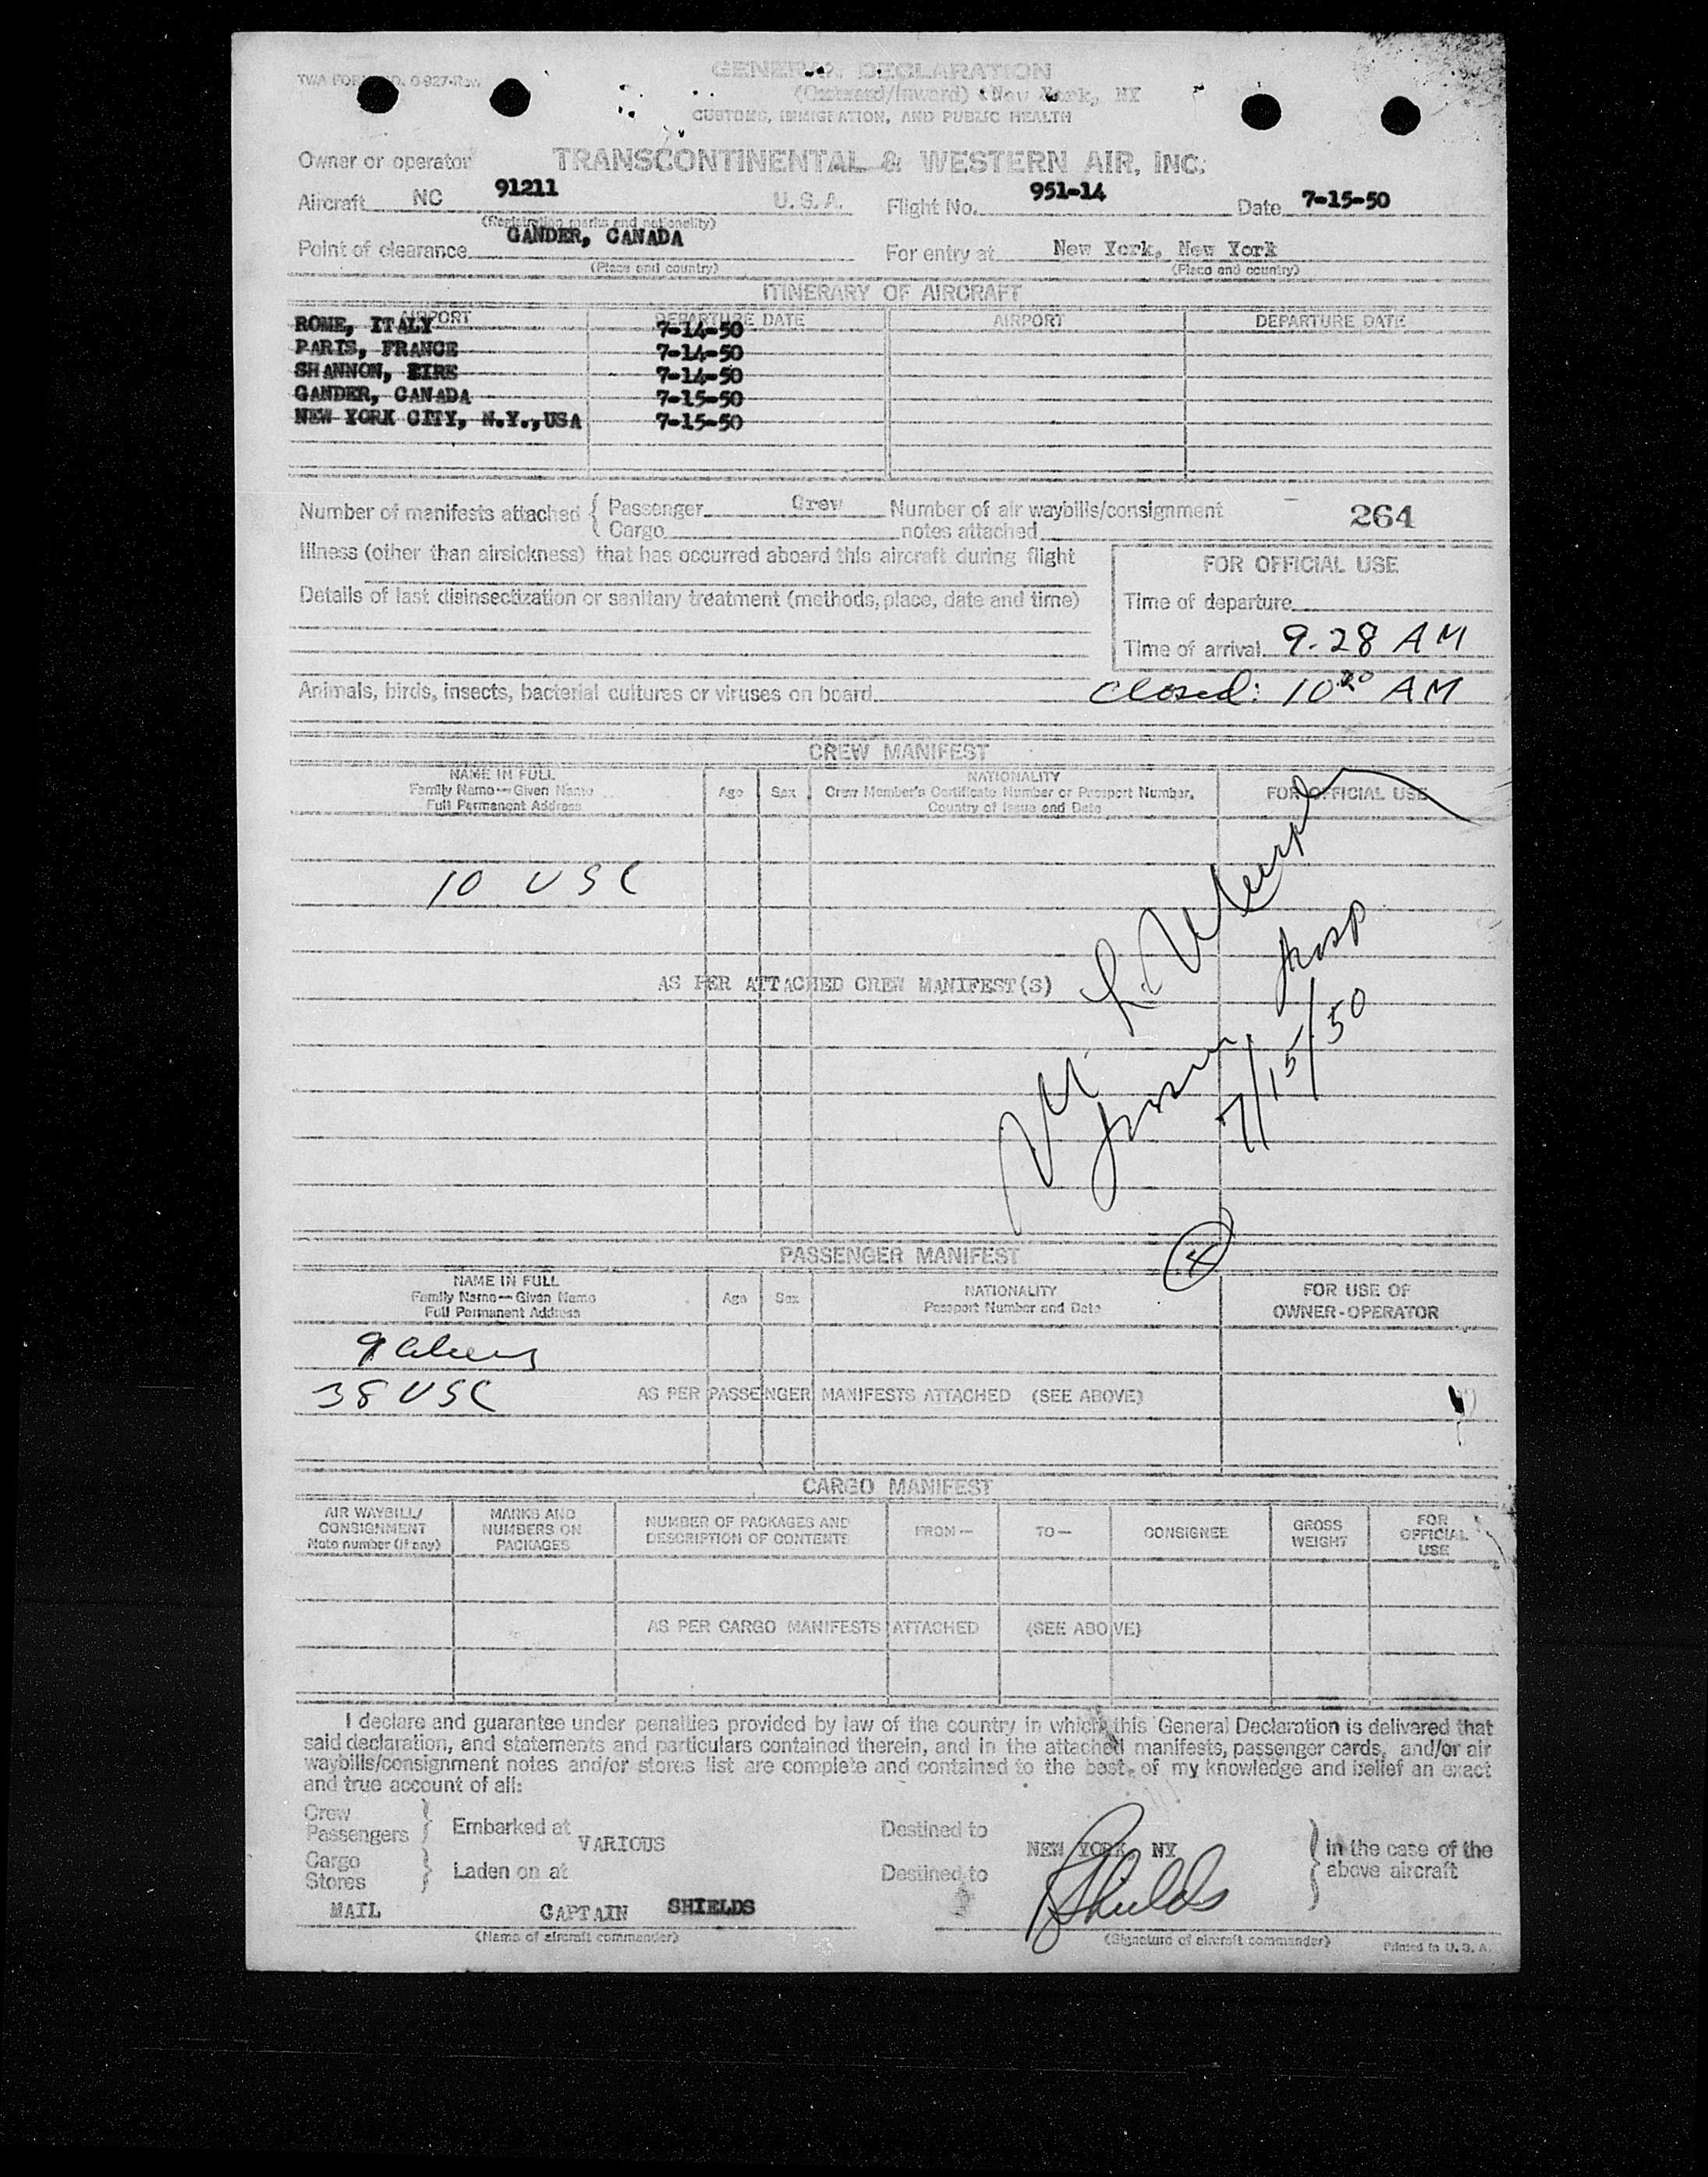 TWA FORM NO. 0-927-Rev.
GENERAL DECLARATION
(Outward/Inward) New York, NY
CUSTOMS, IMMIGRATION, AND PUBLIC HEALTH
Owner or operator TRANSCONTINENTAL & WESTERN AIR, INC.
Aircraft NC 91211 U. S. A. Flight No. 951-14 Date 7-15-50
(Registration marks and nationality)
Point of clearance GANDER, CANADA For entry at New York, New York
(Place and country) (Place and country)
ITINERARY OF AIRCRAFT
AIRPORT DEPARTURE DATE AIRPORT DEPARTURE DATE
ROME, ITALY 7-14-50
PARIS, FRANCE 7-14-50
SHANNON, EIRE 7-14-50
GANDER, CANADA 7-15-50
NEW YORK CITY, N.Y.,USA 7-15-50
Number of manifests attached { Passenger Crew Number of air waybills/consignment 264
Cargo notes attached
Illness (other than airsickness) that has occurred aboard this aircraft during flight
FOR OFFICIAL USE
Details of last disinsectization or sanitary treatment (methods, place, date and time)
Time of departure
Time of arrival 9.28 AM
Animals, birds, insects, bacterial cultures or viruses on board
Closed: 10 20 AM
CREW MANIFEST
NAME IN FULL
Family Name—Given Name
Full Permanent Address
Age Sex
NATIONALITY
Crew Member's Certificate Number or Passport Number,
Country of Issue and Date
FOR OFFICIAL USE
10 USC
AS PER ATTACHED CREW MANIFEST(S)
7/15/50
PASSENGER MANIFEST
NAME IN FULL
Family Name—Given Name
Full Permanent Address
Age Sex
NATIONALITY
Passport Number and Date
FOR USE OF
OWNER-OPERATOR
9 aliens
38 USC AS PER PASSENGER MANIFESTS ATTACHED (SEE ABOVE)
CARGO MANIFEST
AIR WAYBILL/
CONSIGNMENT
Note number (if any)
MARKS AND
NUMBERS ON
PACKAGES
NUMBER OF PACKAGES AND
DESCRIPTION OF CONTENTS
FROM— TO— CONSIGNEE
GROSS
WEIGHT
FOR
OFFICIAL
USE
AS PER CARGO MANIFESTS ATTACHED (SEE ABOVE)
I declare and guarantee under penalties provided by law of the country in which this General Declaration is delivered that
said declaration, and statements and particulars contained therein, and in the attached manifests, passenger cards, and/or air
waybills/consignment notes and/or stores list are complete and contained to the best of my knowledge and belief an exact
and true account of all:
Crew
Passengers } Embarked at VARIOUS Destined to NEW YORK, NY
Cargo
Stores } Laden on at Destined to
} in the case of the
above aircraft
MAIL CAPTAIN SHIELDS Shields
(Name of aircraft commander) (Signature of aircraft commander) Printed in U. S. A.